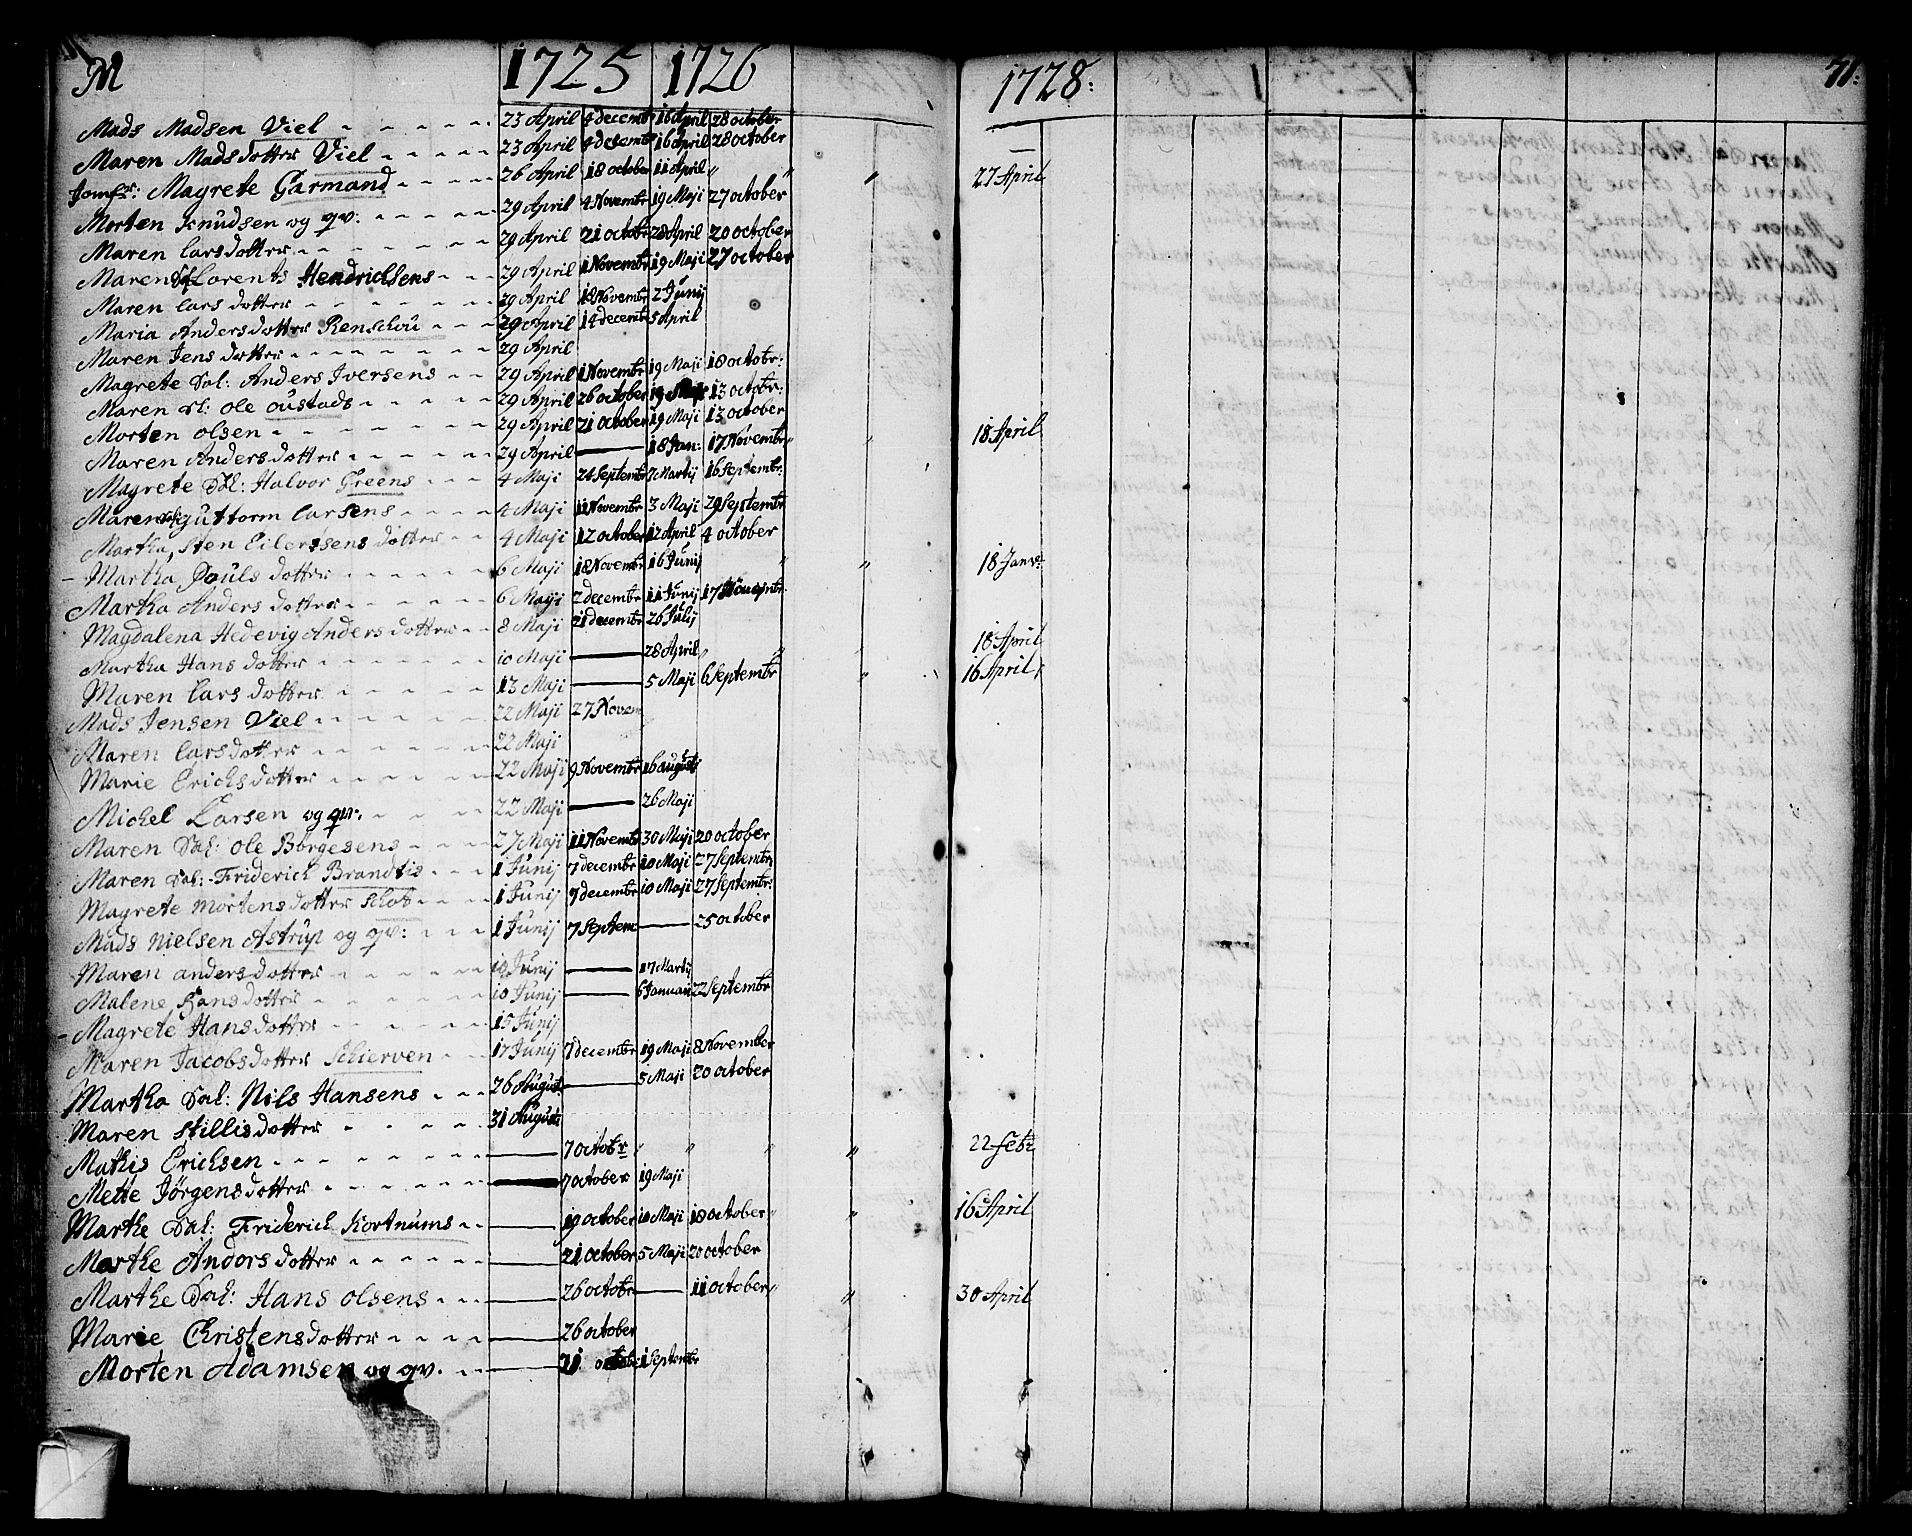 M 1725 1726 1728: 71:
Mads Madsen Viel 23 April 4 decembr 16 April 28 october
Maren Mads dotter Viel 23 April 4 desembr 16 April 28 october
Jomfr: Magrete Garmand 26 April 18 october 11 April " " " 27 April
Morten Knudsen og qv: 29 April 4 Novembr 19 Maji 27 october
Maren Lars dotter 29 April 21 octobr 28 April 20 october
Maren Sal Lorents Hendrichsens 29 April 1 Novembr 19 Maji 27 october
Maren Lars dotter 29 April 18 Novembr 2 Junij
Maria Anders dotter Renschou 29 April 14 decembr 5 April
Maren Jens dotter 29 April
Magrete Sal: Anders Iversens 29 April 1 Novembr 19 Maji 18 octobr:
Maren Sl: ole oustads 29 April 26 october 19 Maji 13 octobr:
Morten olsen 29 April 21 october 19 Maji 13 october
Maren Anders dotter 29 April — 18 Jan: 17 Novembr " " 18 April
Magrete Sal: Halvor Greens 4 Maji 24 Septembr 7 Martij 16 Septembr:
Maren Sal: guttorm Larsens 4 Maji 12 Novembr 3 Maji 29 Septembr
Martha, Sten Eilerssens dotter 4 Maji 12 october 12 April 4 october
- Martha Pouls dotter 6 Maji 18 Novembr 16 Junij " " 18 Janr:
Martha Anders dotter 6 Maji 2 decembr 11 Junij 17 Novembr
Magdalena Hedevig Anders dotter 8 Maji 21 decembr 26 Julij
Martha Hans dotter 10 Maji — 28 April " " " 18 April
Maren Lars dotter 13 Maji — 5 Maji 6 Septembr " 16 April
Mads Jensen Viel 22 Maji 27 Novem
Maren Lars dotter 22 Maji
Marie Erichs dotter 22 Maji 9 Novembr 16 augusti
Michel Larsen og qv: 22 Maji — 26 Maji
Maren Sal: ole Børgesens 27 Maji 11 Novembr 30 Maji 20 october
Maren Sal: Friderich Brandtis 1 Junij 7 decembr 10 Maji 27 Septembr
Magrete Mortens dotter Schot 1 Junij 7 decembr 10 Maji 27 Septembr:
Mads Nielsen Astrup og qv: 1 Junij 7 Septem — 25 october
Maren anders dotter 10 Junij — 17 Martij
Malene Hans dotter 10 Junij — 6 Januari 22 Septembr
- Magrete Hans dotter 15 Junij
Maren Jacobs dotter Schierven 17 Junij 7 decembr 19 Maji 8 November
Martha Sal: Nils Hansens 26 August — 5 Maji 20 october
Maren Stillis dotter 31 August
Mathis Erichsen — 7 octobr " " " " 22 febr
Mette Jörgens dotter — 7 october 19 Maji
Marthe Sal: Friderich Kortnums — 19 october 10 Maji 18 october " " 16 April
Marthe Anders dotter — 21 october 5 Maji 20 october
Marthe Sal: Hans olsens — 26 octobr — 11 october " " 30 April
Marie Christens dotter — 26 october
Morten Adamsen og qv. — 31 october 1 Septembr